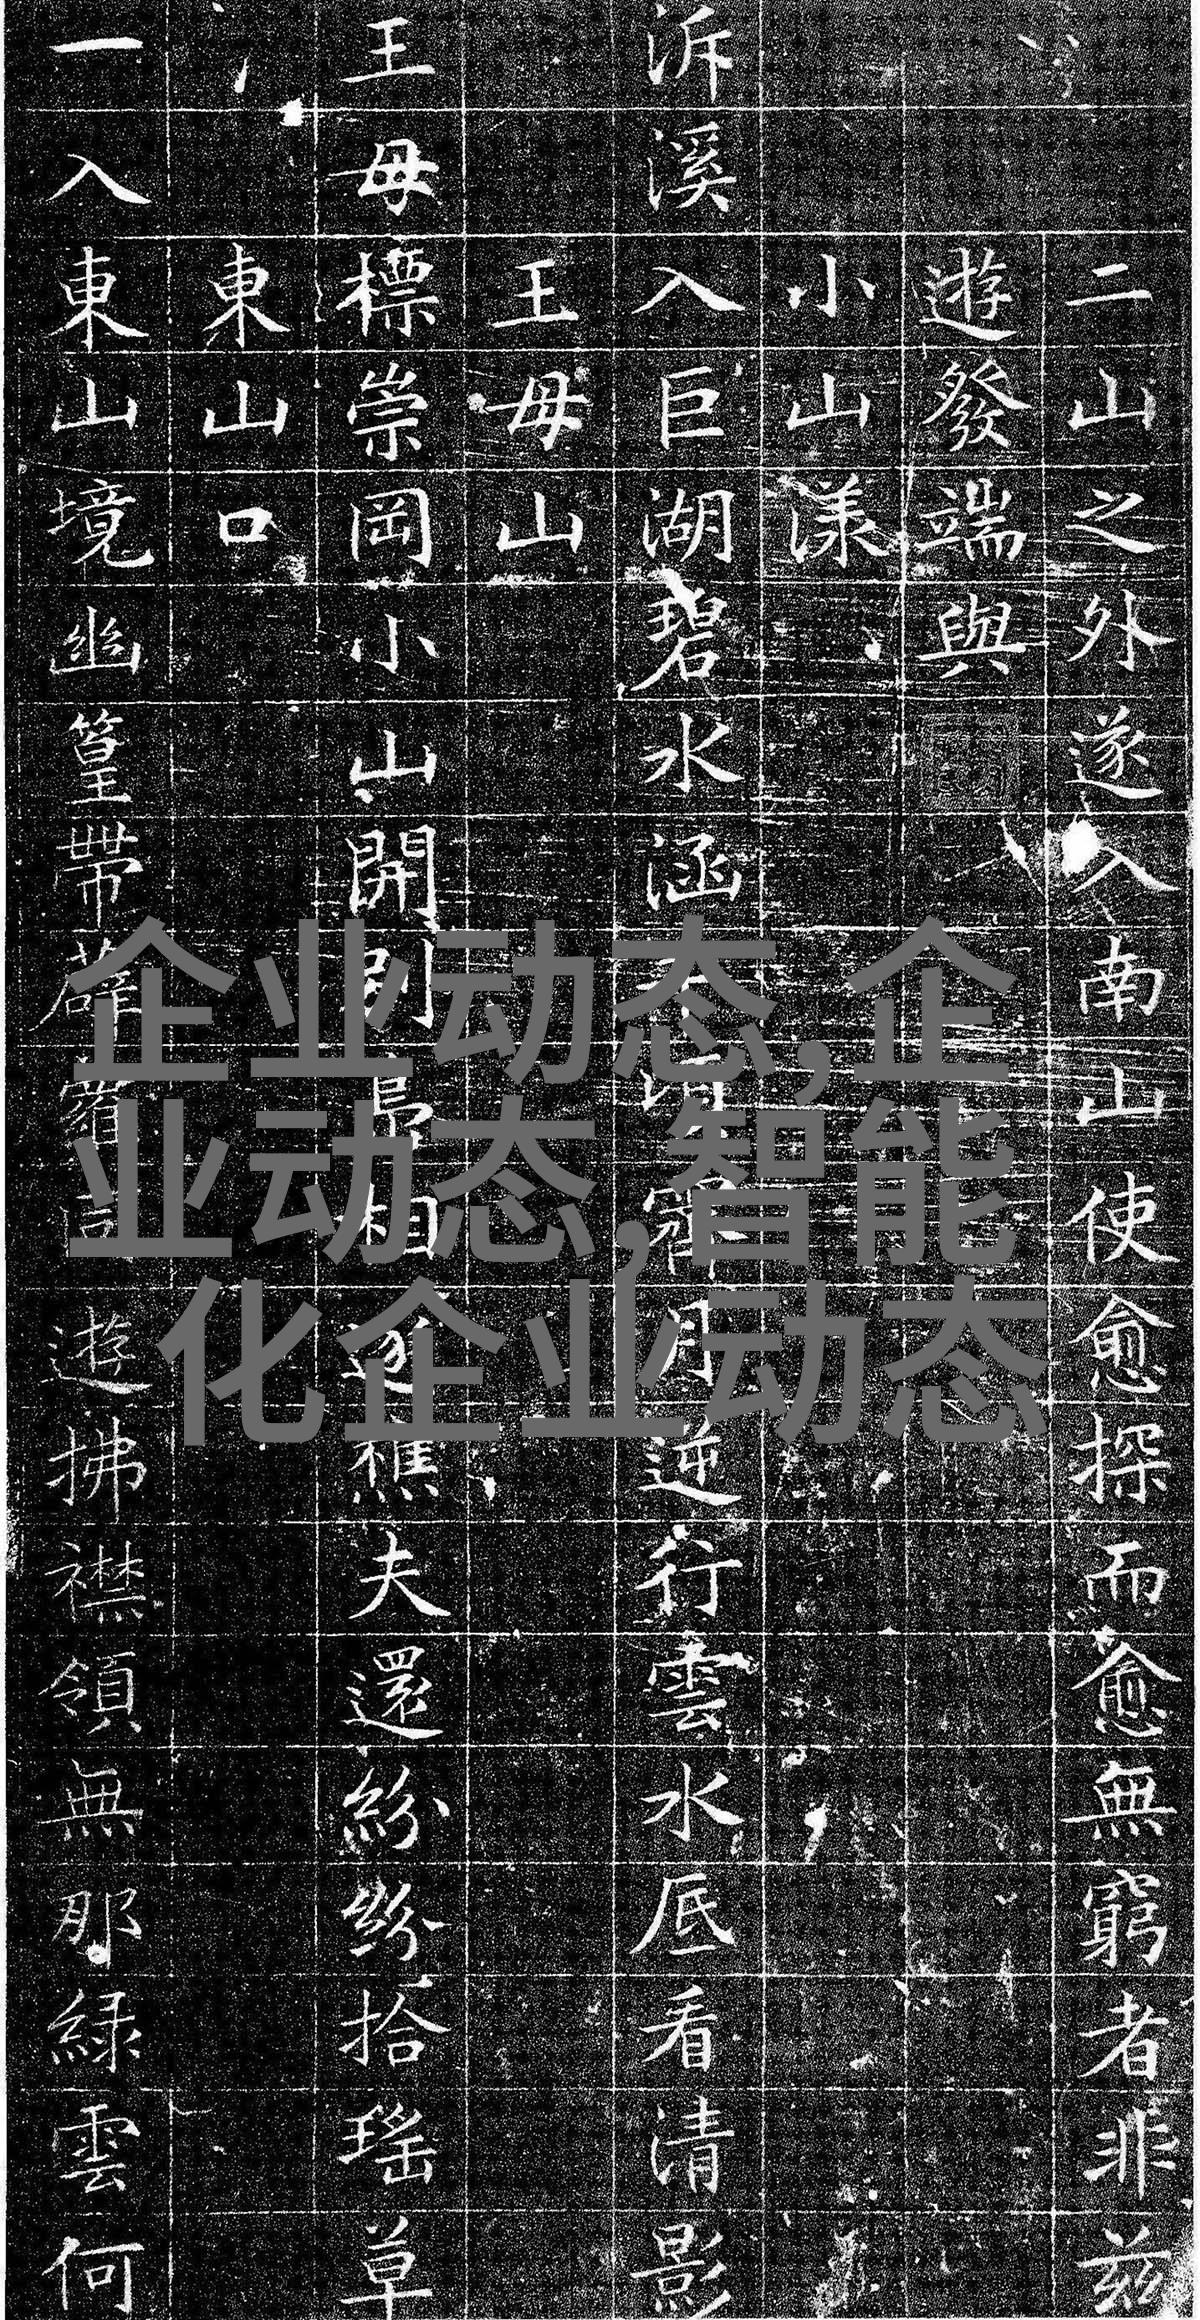 二山之外遂入南山使愈探而愈無窮者非茲
遊發端與
小山漾
泝溪入巨湖碧水涵月逆行雲水底看清影
王母山
王母標崇岡小山開別島相逐樵夫還紛紛拾瑤草
東山口
一入東山境幽篁帶薜蘿同遊拂襟領無那綠雲何
企业动态,企
业动态,智能
化企业动态